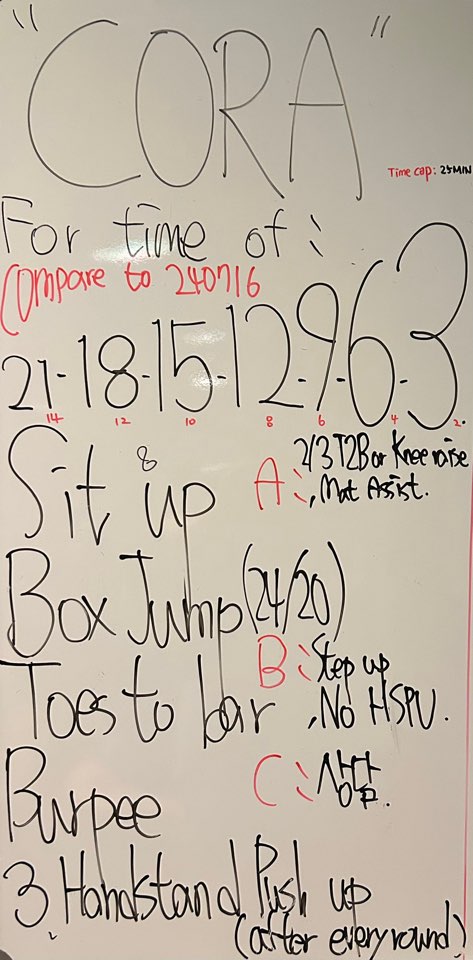 "CORA"
Time cap: 25MIN
For time of:
Compare to 240716
21-18-15-12-9-6-3
14 12 10 8 6 4 2.
Sit up
8
A: 2/3 T2B or Knee raise
, Mat Assist.
Box Jump (24/20)
B: Step up
Toes to bar
, No HSPU.
C:
Burpee
3 Handstand Push up
(after every round)